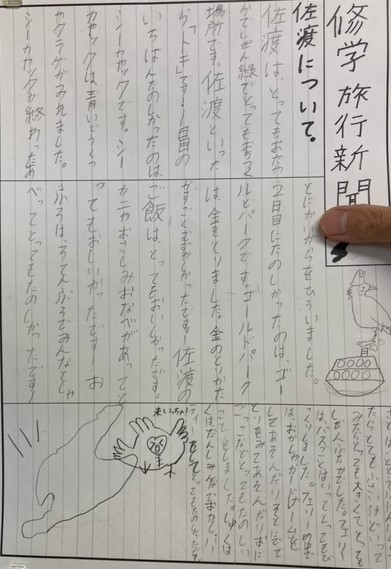 修学旅行新聞
佐渡について。
佐渡は、とってもおだや
かでしぜん緑でとっても
場所です。佐渡といった
ら「トキ」です!一日目の
いちばんたのしかったのは、
シーカヤックです。シー
カヤックは青いどうくつ
やクラゲがみれました。
シーカヤックが終わったあ
とにかいがらをひろいました。
2日目にたのしかったのは、ゴー
ルドパークです。ゴールドパーク
は、金をとりました。金のとりかた
がすごくむずかしかったです!佐渡の
ご飯は、とってもおいしかったです。
カニやおさしみおなべがあってと
ってもおいしかったです!お
ふろは、ろてんぶろでみんなとしゃ
べってとってもたのしかったです!
たらとても小さいけどいって
みたらとっても大きくて、とても
しぜんゆたかでした。フェリー
は、バスごとはいってとってもび
っくりしました。フェリーの中で
は、おかしやカードゲームを
してあそんだりそとにでて
とりをみてあそんだりおに
ごっこなどとってもたのしい
ことをしました。